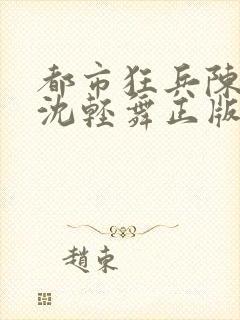 都市狂兵陳
沈輕舞正版
趙東